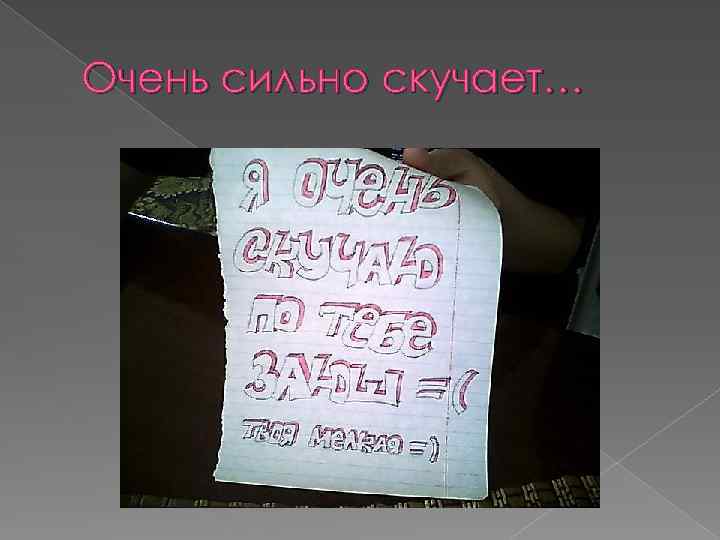 Очень сильно скучает...
Я ОЧЕНЬ
СКУЧАЮ
ПО ТЕБЕ
ЗАЮШ =(
ТВОЯ МЕЛКАЯ =)